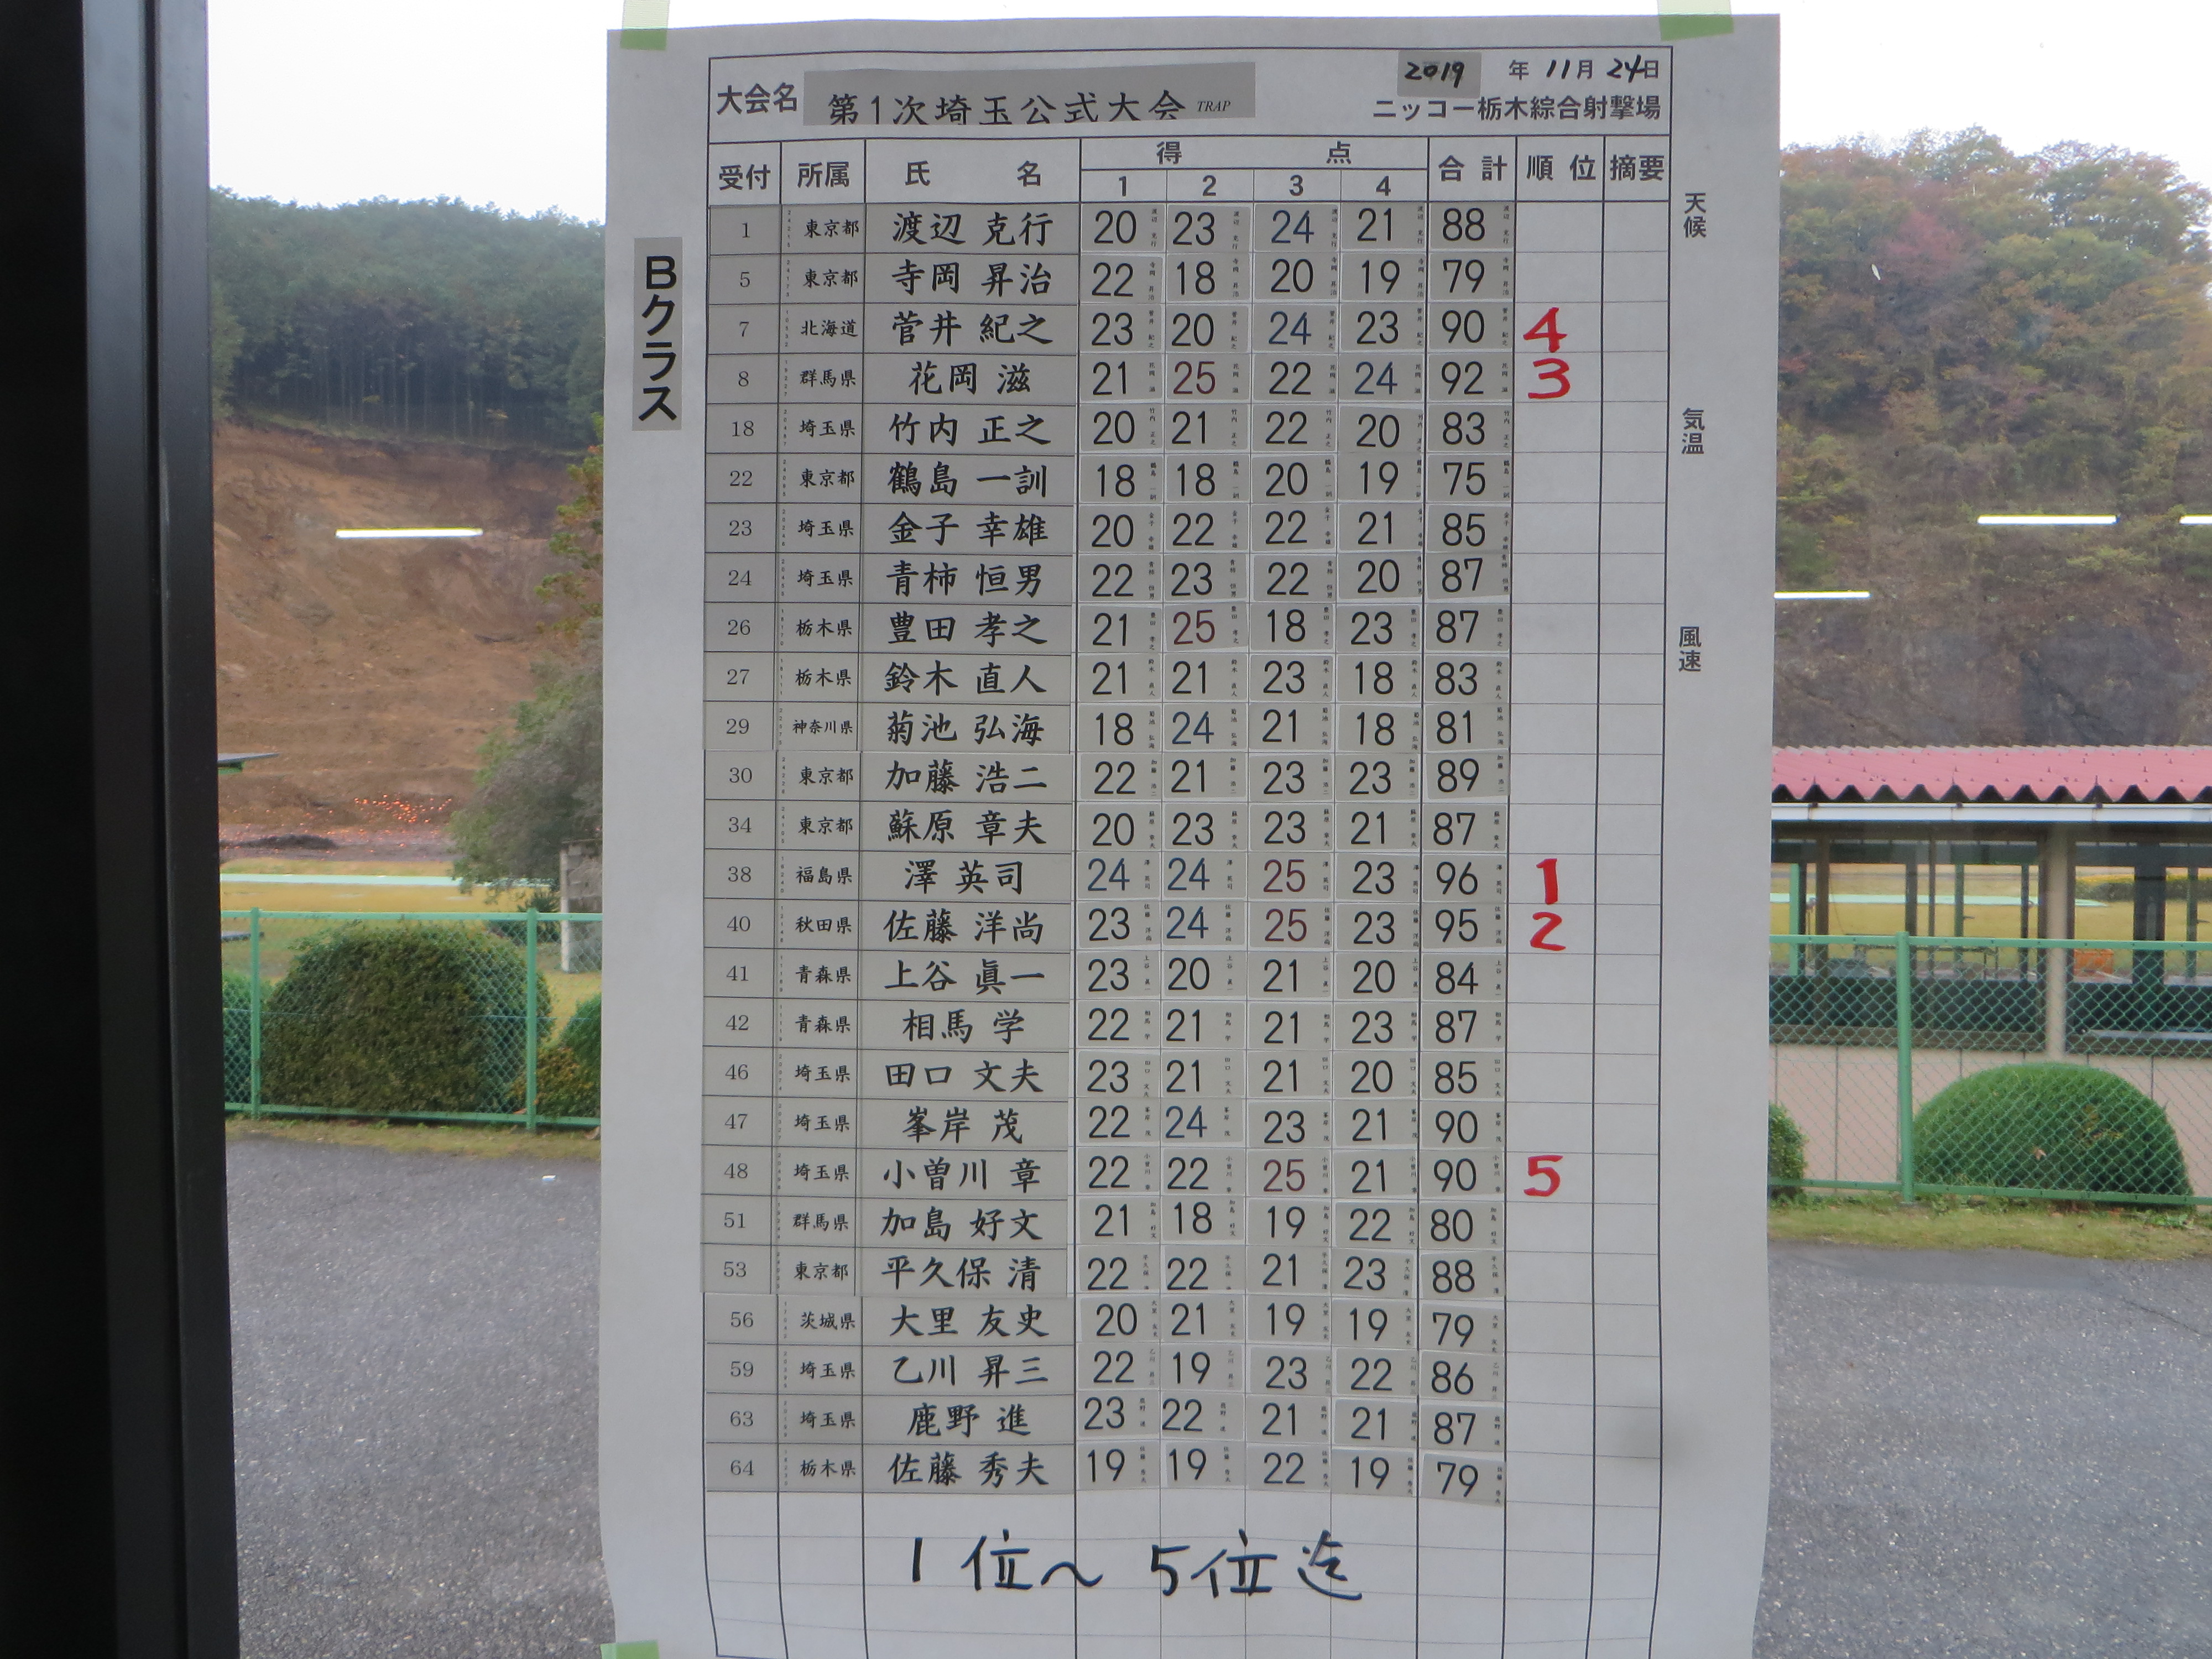 2019 年 11月 24日
大会名 第1次埼玉公式大会 TRAP ニッコー栃木綜合射撃場
Bクラス
受付 所属 氏名 得点 合計 順位 摘要
1 2 3 4
1 東京都 渡辺 克行 20 23 24 21 88
5 東京都 寺岡 昇治 22 18 20 19 79
7 北海道 菅井 紀之 23 20 24 23 90 4
8 群馬県 花岡 滋 21 25 22 24 92 3
18 埼玉県 竹内 正之 20 21 22 20 83
22 東京都 鶴島 一訓 18 18 20 19 75
23 埼玉県 金子 幸雄 20 22 22 21 85
24 埼玉県 青柿 恒男 22 23 22 20 87
26 栃木県 豊田 孝之 21 25 18 23 87
27 栃木県 鈴木 直人 21 21 23 18 83
29 神奈川県 菊池 弘海 18 24 21 18 81
30 東京都 加藤 浩二 22 21 23 23 89
34 東京都 蘇原 章夫 20 23 23 21 87
38 福島県 澤 英司 24 24 25 23 96 1
40 秋田県 佐藤 洋尚 23 24 25 23 95 2
41 青森県 上谷 眞一 23 20 21 20 84
42 青森県 相馬 学 22 21 21 23 87
46 埼玉県 田口 文夫 23 21 21 20 85
47 埼玉県 峯岸 茂 22 24 23 21 90
48 埼玉県 小曽川 章 22 22 25 21 90 5
51 群馬県 加島 好文 21 18 19 22 80
53 東京都 平久保 清 22 22 21 23 88
56 茨城県 大里 友史 20 21 19 19 79
59 埼玉県 乙川 昇三 22 19 23 22 86
63 埼玉県 鹿野 進 23 22 21 21 87
64 栃木県 佐藤 秀夫 19 19 22 19 79
1位〜5位迄
天候
気温
風速